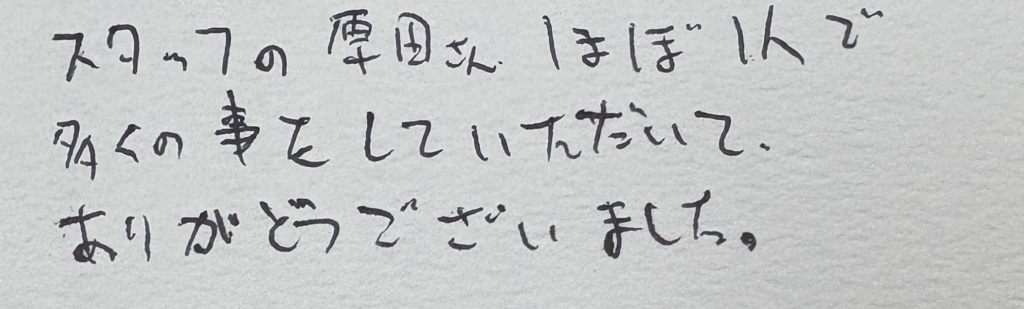 スタッフの厚田さん ほぼ1人で
多くの事をしていただいて、
ありがどうでございました。